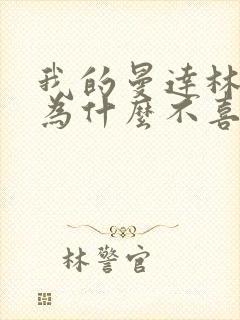 我的曼达林
为什麼不喜
林警官